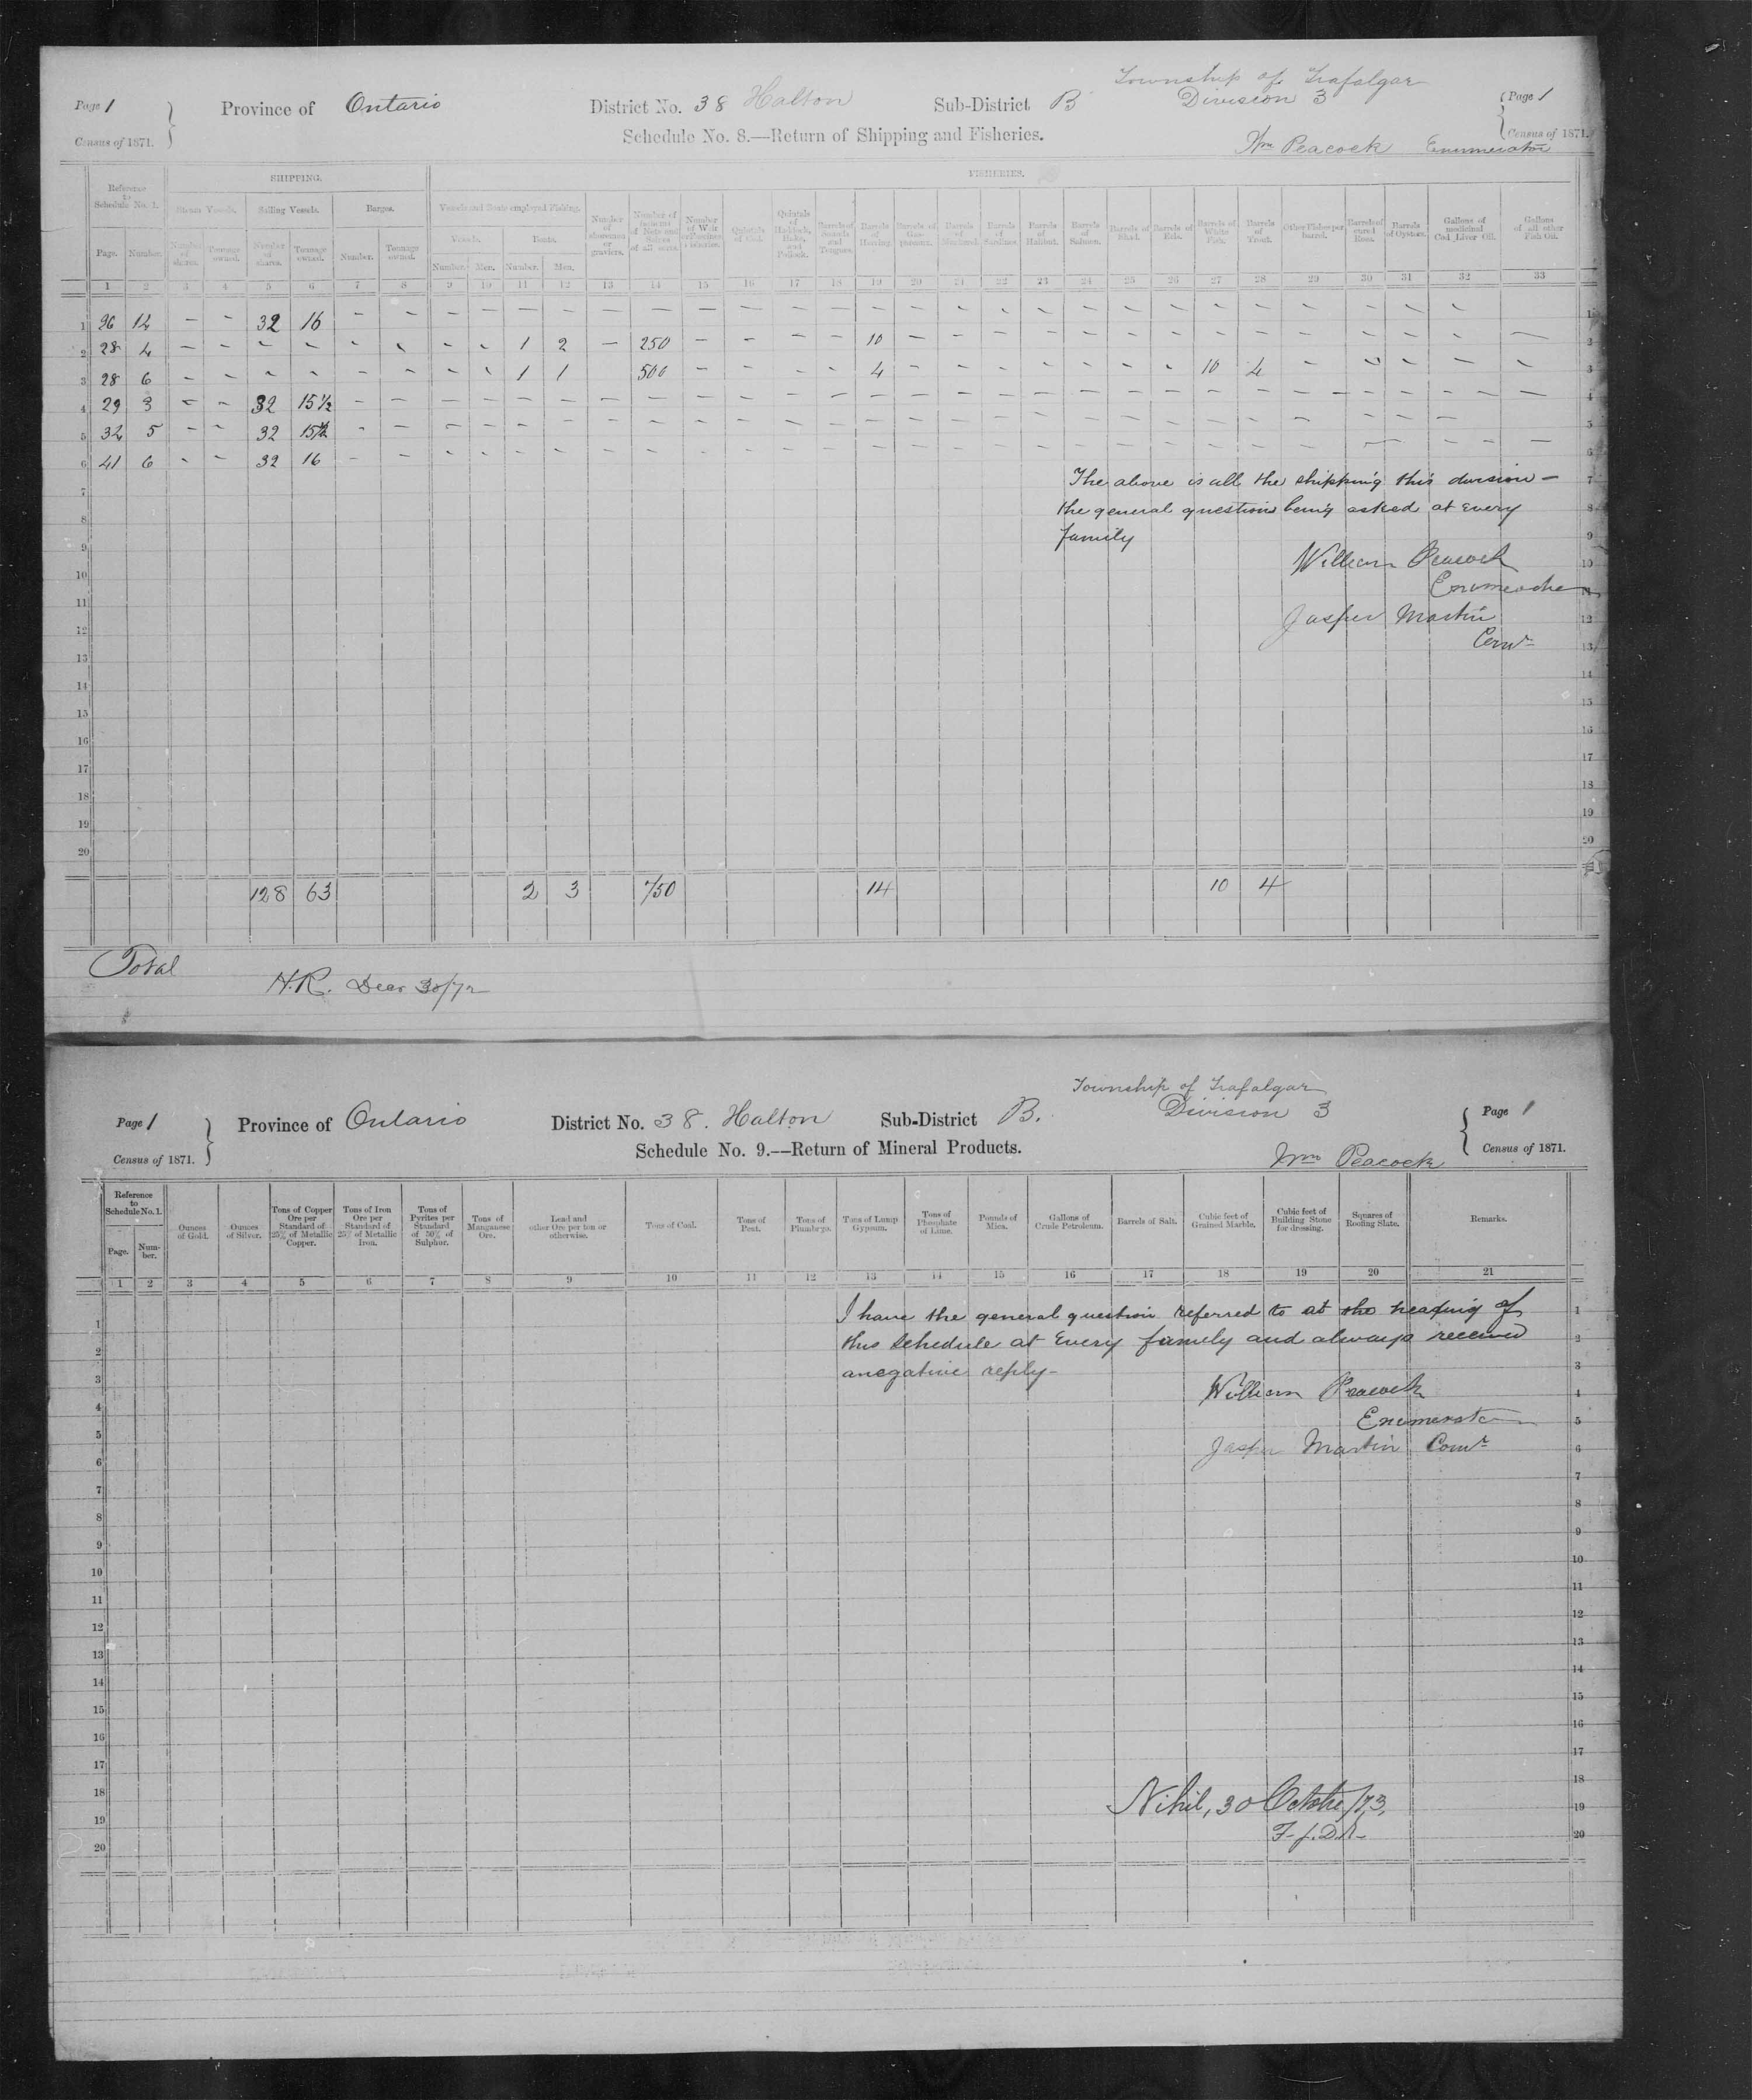 Township of Trafalgar
Page 1 Province of Ontario District No. 38 Halton Sub-District B Division 3 Page 1
Census of 1871. Schedule No. 8.—Return of Shipping and Fisheries. Census of 1871.
Wm Peacock Enumerator
SHIPPING. FISHERIES.
Reference to Schedule No. 1. Steam Vessels. Sailing Vessels. Barges. Vessels and Boats employed Fishing. Vessels. Boats.
Page. Number. Number of shares. Tonnage owned. Number of shares. Tonnage owned. Number. Tonnage owned. Number. Men. Number. Men. Number of shoremen or graviers. Quintals of Cod. Quintals of Haddock, Hake, and Pollock. Barrels of Sounds and Tongues. Barrels of Herring. Barrels of Gaspareaux. Barrels of Mackerel. Barrels of Sardines. Barrels of Halibut. Barrels of Salmon. Barrels of Shad. Barrels of Eels. Barrels of White Fish. Barrels of Trout. Other Fishes per barrel. Barrels of cured Roes. Barrels of Oysters. Gallons of medicinal Cod Liver Oil. Gallons of all other Fish Oil.
1 2 3 4 5 6 7 8 9 10 11 12 13 14 15 16 17 18 19 20 21 22 23 24 25 26 27 28 29 30 31 32 33
1 26 12 – – 32 16 – – – – – – – – – – – – – – – – – – – – – – – – – – 1
2 28 4 – – – – – – – – 1 2 – 250 – – – – 10 – – – – – – – – – – – – – – 2
3 28 6 – – – – – – – – 1 1 500 – – – – 4 – – – – – – – 10 4 – – – – – 3
4 29 3 – – 32 15 1/2 – – – – – – – – – – – – – – – – – – – – – – – – – – – 4
5 32 5 – – 32 15 1/2 – – – – – – – – – – – – – – – – – – – – – – – – – – 5
6 41 6 – – 32 16 – – – – – – – – – – – – – – – – – – – – – – – – – – – 6
7 The above is all the shipping this division – 7
8 the general question being asked at every 8
9 family 9
10 William Peacock 10
11 Enumerator 11
12 Jasper Martin 12
13 Comr 13
14 14
15 15
16 16
17 17
18 18
19 19
20 20
128 63 2 3 750 14 10 4
Total
H.R. Decr 30/72
Township of Trafalgar
Page 1 Province of Ontario District No. 38. Halton Sub-District B. Division 3 Page 1
Census of 1871. Schedule No. 9.—Return of Mineral Products. Census of 1871.
Wm Peacock
Reference to Schedule No. 1. Page. Number. Ounces of Gold. Ounces of Silver. Tons of Copper Ore per Standard of 25% of Metallic Copper. Tons of Iron Ore per Standard of 25% of Metallic Iron. Tons of Pyrites per Standard of 50% of Sulphur. Tons of Manganese Ore. Lead and other Ore per ton or otherwise. Tons of Coal. Tons of Peat. Tons of Plumbago. Tons of Lump Gypsum. Tons of Phosphate of Lime. Pounds of Mica. Gallons of Crude Petroleum. Barrels of Salt. Cubic feet of Grained Marble. Cubic feet of Building Stone for dressing. Squares of Roofing Slate. Remarks.
1 2 3 4 5 6 7 8 9 10 11 12 13 14 15 16 17 18 19 20 21
1 I have the general question referred to at the heading of 1
2 this schedule at every family and always received 2
3 a negative reply – 3
4 William Peacock 4
5 Enumerator 5
6 Jasper Martin Comr 6
7 7
8 8
9 9
10 10
11 11
12 12
13 13
14 14
15 15
16 16
17 17
18 18
19 Nihil, 30 October/73, 19
20 20